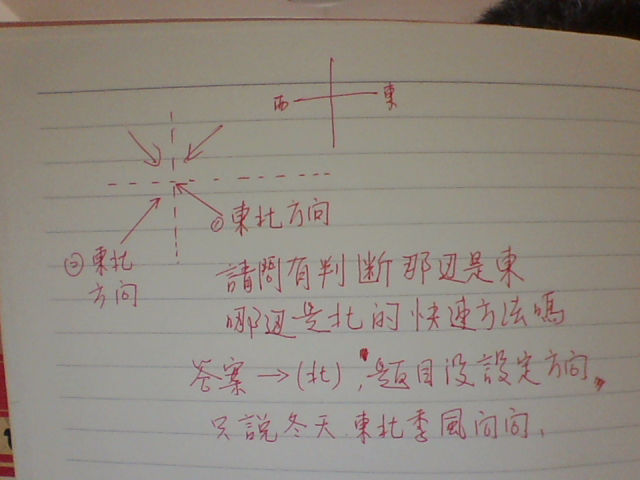 西 東
①東北方向
②東北
方向
請問有判断那边是東
哪边是北的快速方法嗎
答案→(北),題目没設定方向,
只說冬天東北季風向